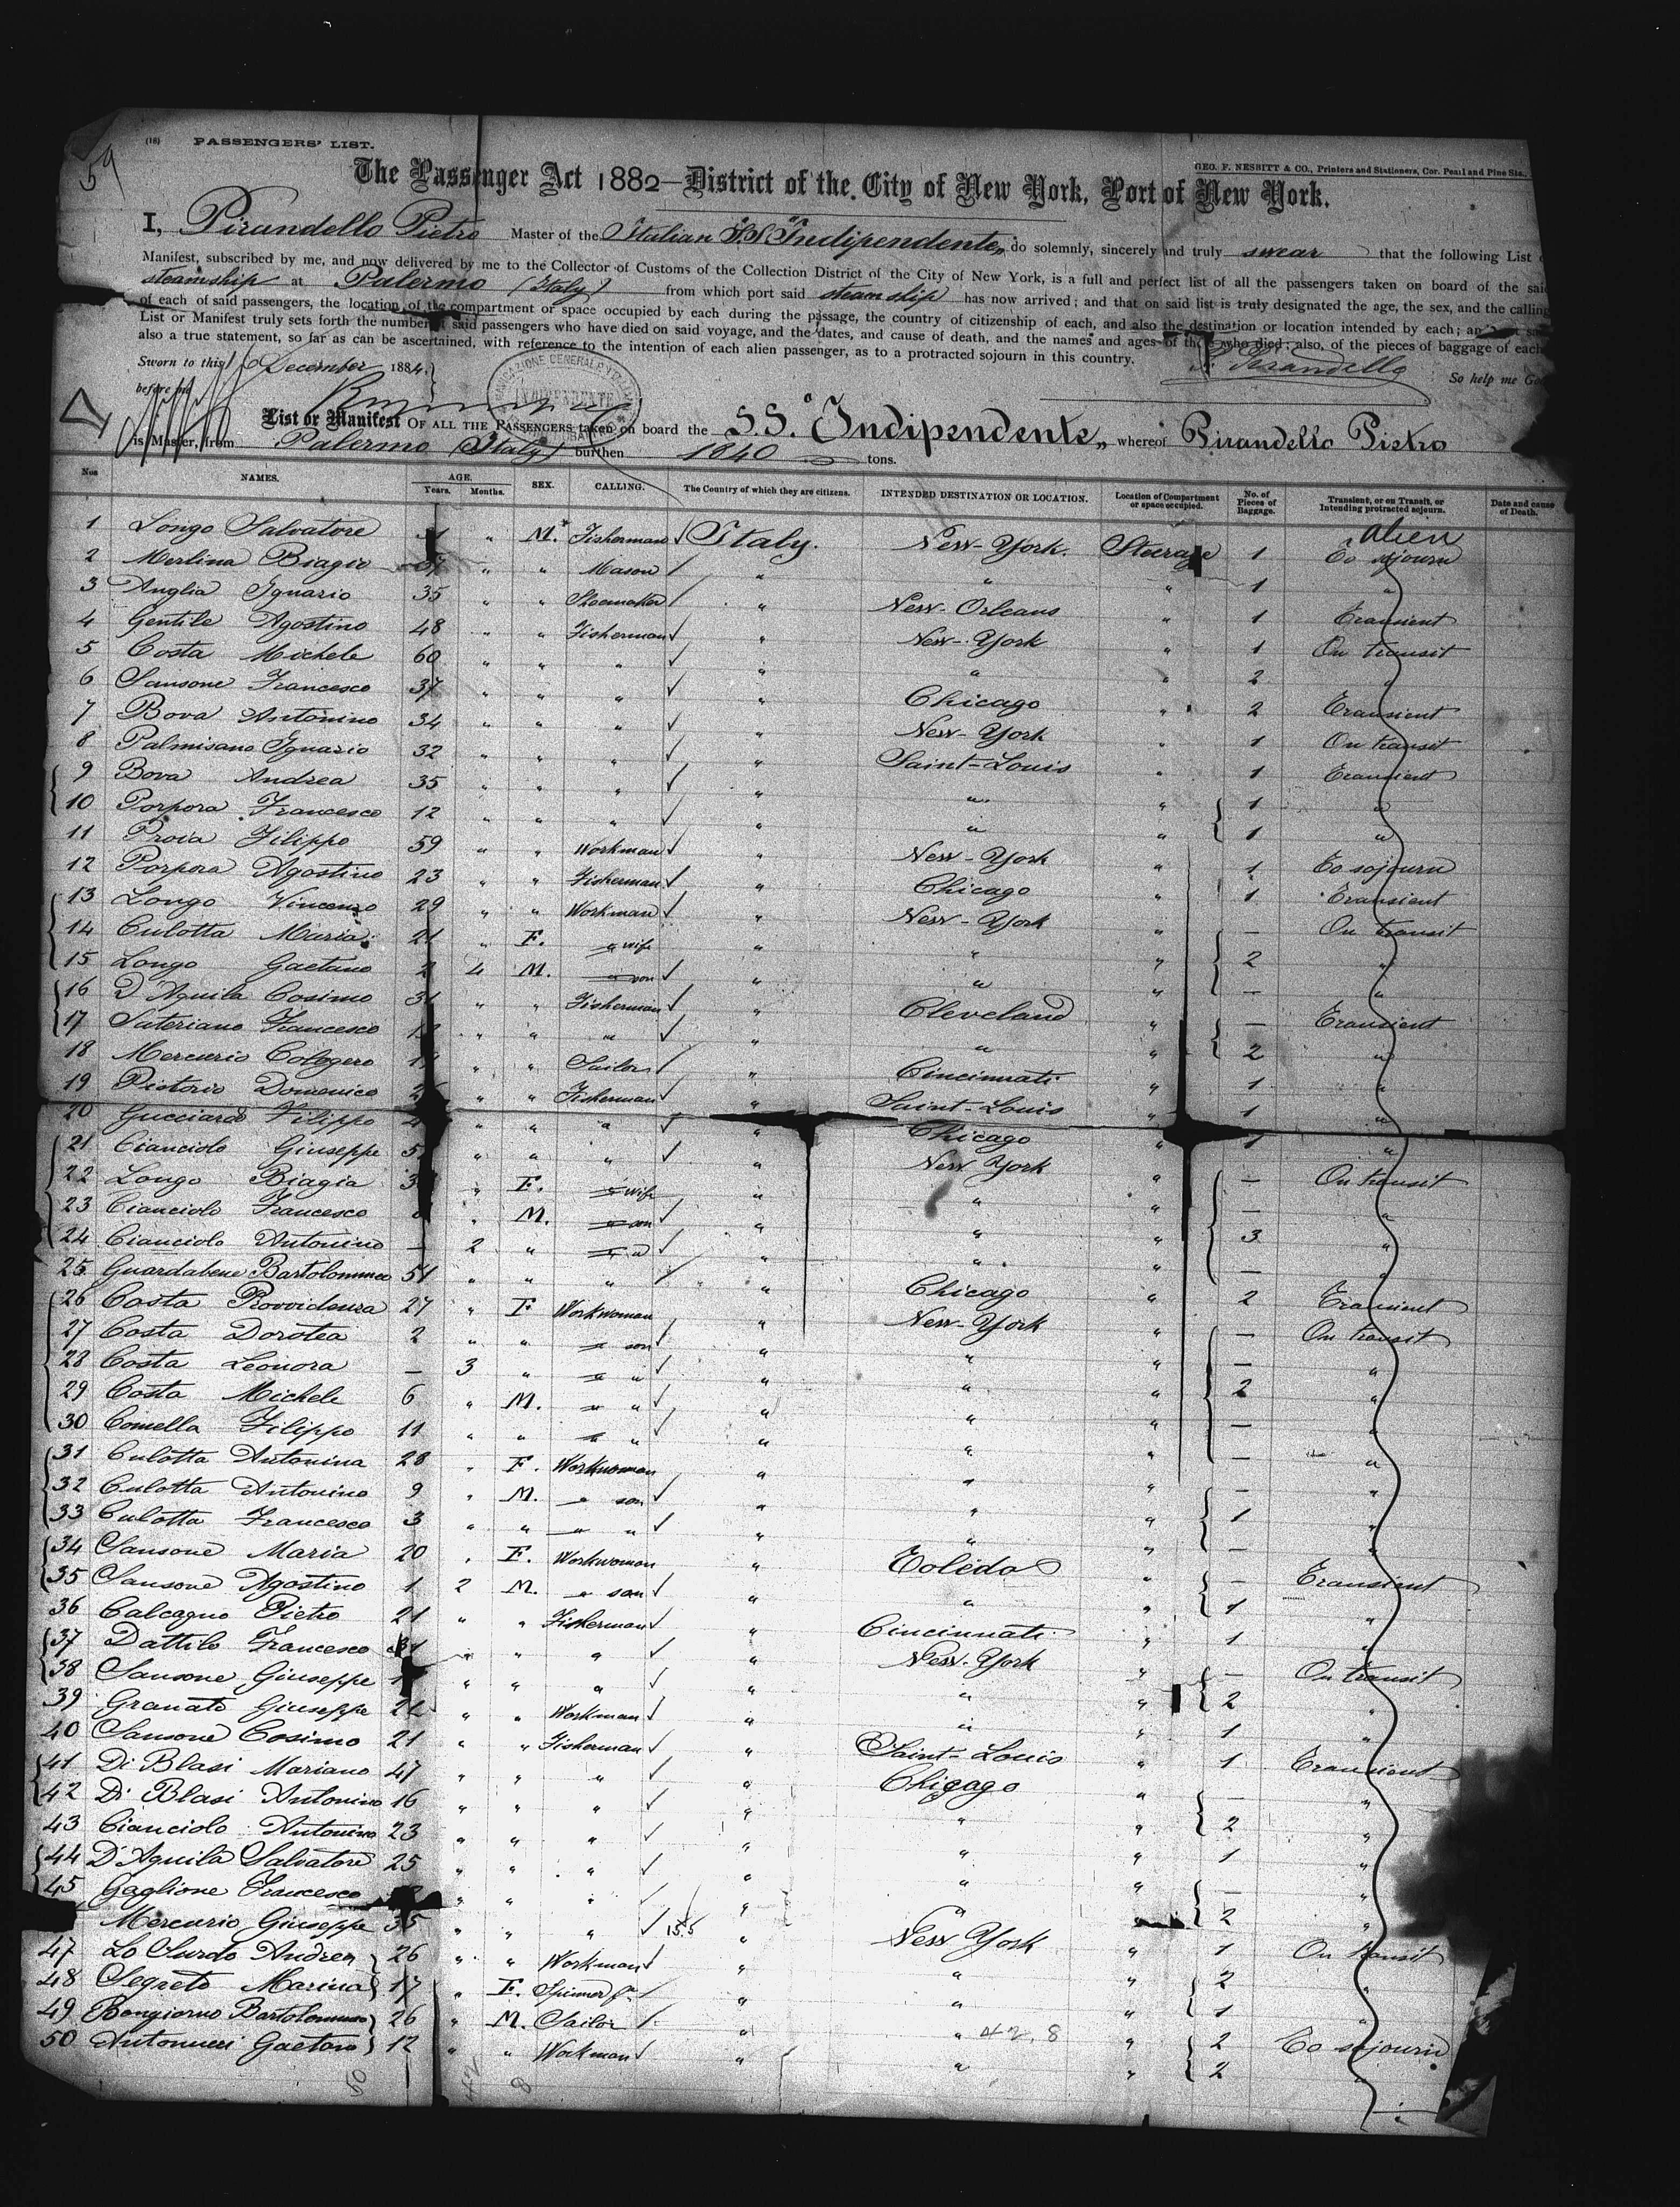 59
(18) PASSENGERS' LIST.
GEO. F. NESBITT & CO., Printers and Stationers, Cor. Pearl and Pine Sts.,
The Passenger Act 1882—District of the City of New York, Port of New York.
I, Pirandello Pietro Master of the Italian S.S. "Indipendente" do solemnly, sincerely and truly swear that the following List
Manifest, subscribed by me, and now delivered by me to the Collector of Customs of the Collection District of the City of New York, is a full and perfect list of all the passengers taken on board of the said
steamship at Palermo (Italy) from which port said steamship has now arrived; and that on said list is truly designated the age, the sex, and the calling
of each of said passengers, the location of the compartment or space occupied by each during the passage, the country of citizenship of each, and also the destination or location intended by each;
List or Manifest truly sets forth the number of said passengers who have died on said voyage, and the dates, and cause of death, and the names and ages of those who died; also, of the pieces of baggage of each
also a true statement, so far as can be ascertained, with reference to the intention of each alien passenger, as to a protracted sojourn in this country.
Sworn to this 16 December 1884. P. Pirandello So help me
before me
INDIPENDENTE
List or Manifest OF ALL THE PASSENGERS taken on board the S.S. "Indipendente" whereof Pirandello Pietro
is Master, from Palermo (Italy) burthen 1840 tons.
Nos NAMES. AGE. Years. Months. SEX. CALLING. The Country of which they are citizens. INTENDED DESTINATION OR LOCATION. Location of Compartment or space occupied. No. of Pieces of Baggage. Transient, or on Transit, or Intending protracted sojourn. Date and cause of Death.
alien
1 Longo Salvatore " M. Fisherman Italy. New-York. Steerage 1 To sojourn
2 Merlina Biagio " " Mason " " " 1 "
3 Anglia Ignazio 35 " " Shoemaker " New-Orleans " 1 Transient
4 Gentile Agostino 48 " " Fisherman " New-York " 1 On transit
5 Costa Michele 60 " " " " " " 2 "
6 Sansone Francesco 37 " " " " Chicago " 2 Transient
7 Bova Antonino 34 " " " " New-York " 1 On transit
8 Palmisano Ignazio 32 " " " " Saint-Louis " 1 Transient
9 Bova Andrea 35 " " " " " " 1 "
10 Porpora Francesco 12 " " " " " " 1 "
11 Proia Filippo 59 " " Workman " New-York " 1 To sojourn
12 Porpora Agostino 23 " " Fisherman " Chicago " 1 Transient
13 Longo Vincenzo 29 " " Workman " New-York " — On transit
14 Culotta Maria 21 " F. " wife " " " 2 "
15 Longo Gaetano 2 4 M. " son " " " — "
16 D'Aquila Cosimo 31 " " Fisherman " Cleveland " — Transient
17 Suteriano Francesco " " " " " " 2 "
18 Mercurio Cologero " " Sailor " Cincinnati " 1 "
19 Pistorio Domenico " " Fisherman " Saint-Louis " 1 "
20 Gucciardo Filippo " " " " Chicago " 1 "
21 Cianciolo Giuseppe " " " " New York " — On transit
22 Longo Biagia " F. " wife " " " — "
23 Cianciolo Francesco " M. " son " " " 3 "
24 Cianciolo Antonino — 2 " " " " " " — "
25 Guardabene Bartolommeo 51 " " " " Chicago " 2 Transient
26 Costa Provvidenza 27 " F Workwoman " New-York " — On transit
27 Costa Dorotea 2 " " " son " " " — "
28 Costa Leonora — 3 " " " " " " 2 "
29 Costa Michele 6 " M. " " " " " — "
30 Comella Filippo 11 " " " " " " " — "
31 Culotta Antonina 28 " F. Workwoman " " " — "
32 Culotta Antonino 9 " M. " son " " " 1 "
33 Culotta Francesco 3 " " " " " " " — "
34 Sansone Maria 20 " F. Workwoman " Toledo " — Transient
35 Sansone Agostino 1 2 M. " son " " " 1 "
36 Calcagno Pietro 21 " " Fisherman " Cincinnati " 1 "
37 Dattilo Francesco " " " " New-York " — On transit
38 Sansone Giuseppe " " " " " " 2 "
39 Granato Giuseppe 22 " " Workman " " " 1 "
40 Sansone Cosimo 21 " " Fisherman " Saint-Louis " 1 Transient
41 Di Blasi Mariano 47 " " " " Chicago " — "
42 Di Blasi Antonino 16 " " " " " " 2 "
43 Cianciolo Antonino 23 " " " " " " 1 "
44 D'Aquila Salvatore 25 " " " " " " — "
45 Gaglione Francesco " " " " " " 2 "
Mercurio Giuseppe 35 " " " 155 " New York " 1 On transit
47 Lo Surdo Andrea 26 " " Workman " " " 2 "
48 Segreto Marina 17 " F. Spinner " " " 1 "
49 Bongiorno Bartolommeo 26 " M. Sailor " " 42, 8 " 2 To sojourn
50 Antonucci Gaetano 12 " " Workman " " " 2 "
50 42 8